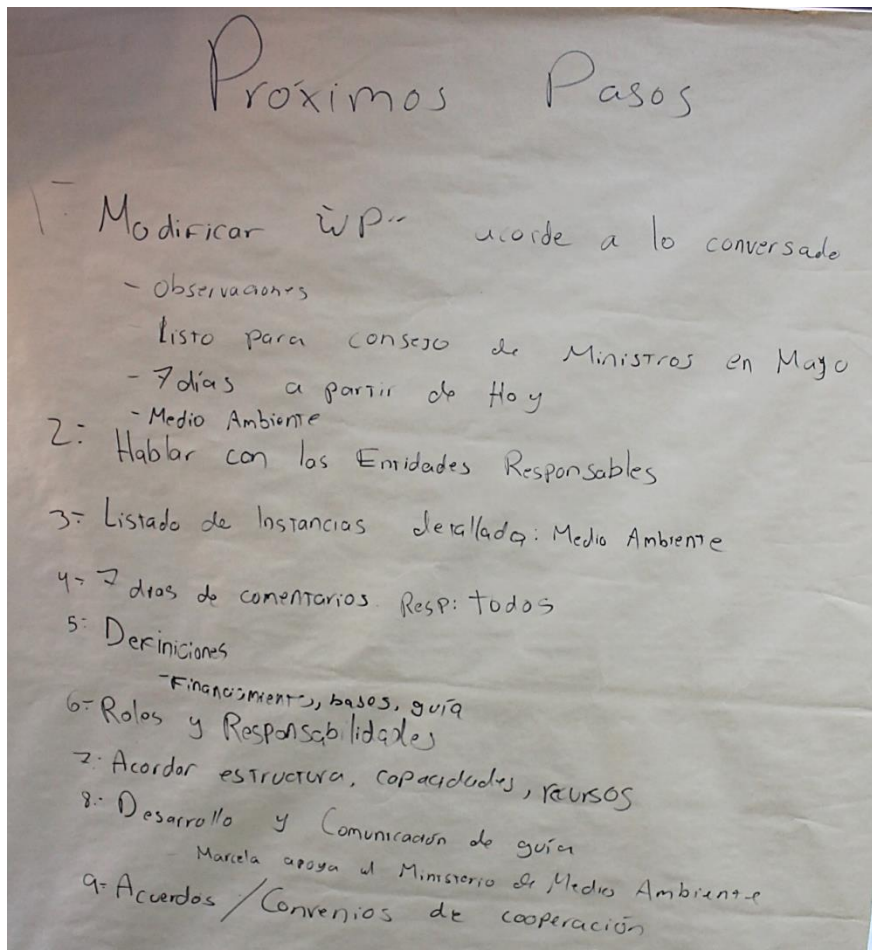 Próximos Pasos
1- Modificar "WP" acorde a lo conversado
- Observaciones
Listo para consejo de Ministros en Mayo
- 7 días a partir de Hoy
- Medio Ambiente
2- Hablar con las Entidades Responsables
3- Listado de Instancias detallada: Medio Ambiente
4- 7 días de comentarios. Resp: todos
5- Definiciones
- Financiamiento, bases, guía
6- Roles y Responsabilidades
7- Acordar estructura, capacidades, recursos
8.- Desarrollo y Comunicación de guía
Marcela apoya al Ministerio de Medio Ambiente
9- Acuerdos / Convenios de cooperación